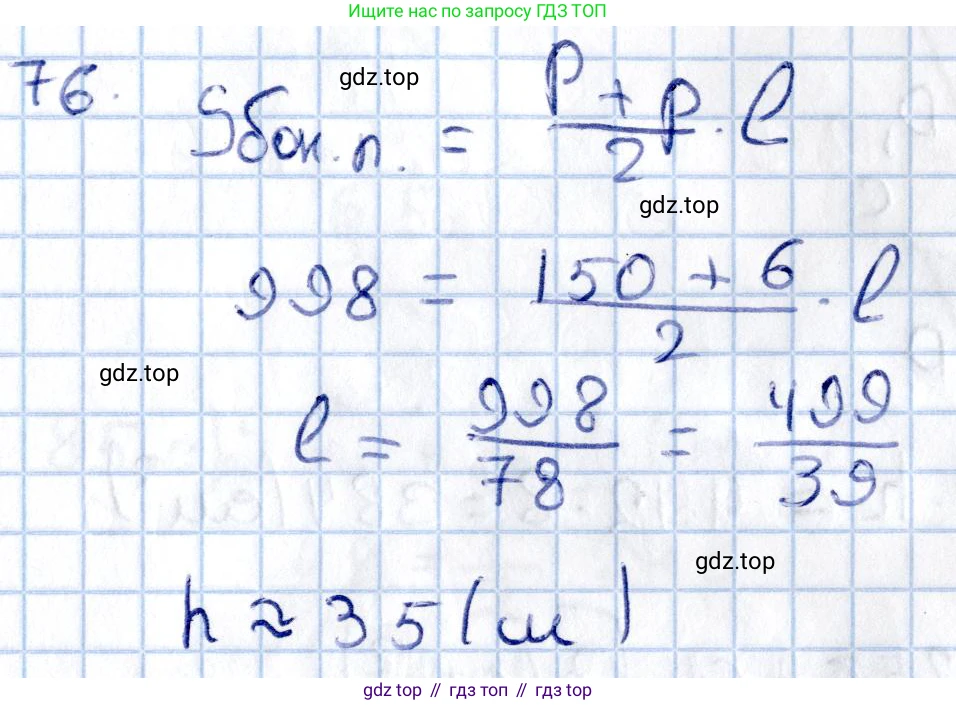 Ищите нас по запросу ГДЗ ТОП
76. Sбок.п. = (P + p)/2 · l
gdz.top
gdz.top
998 = (150 + 6)/2 · l
gdz.top
l = 998/78 = 499/39
gdz.top
h ≈ 35 (м)
gdz.top // гдз топ // гдз top